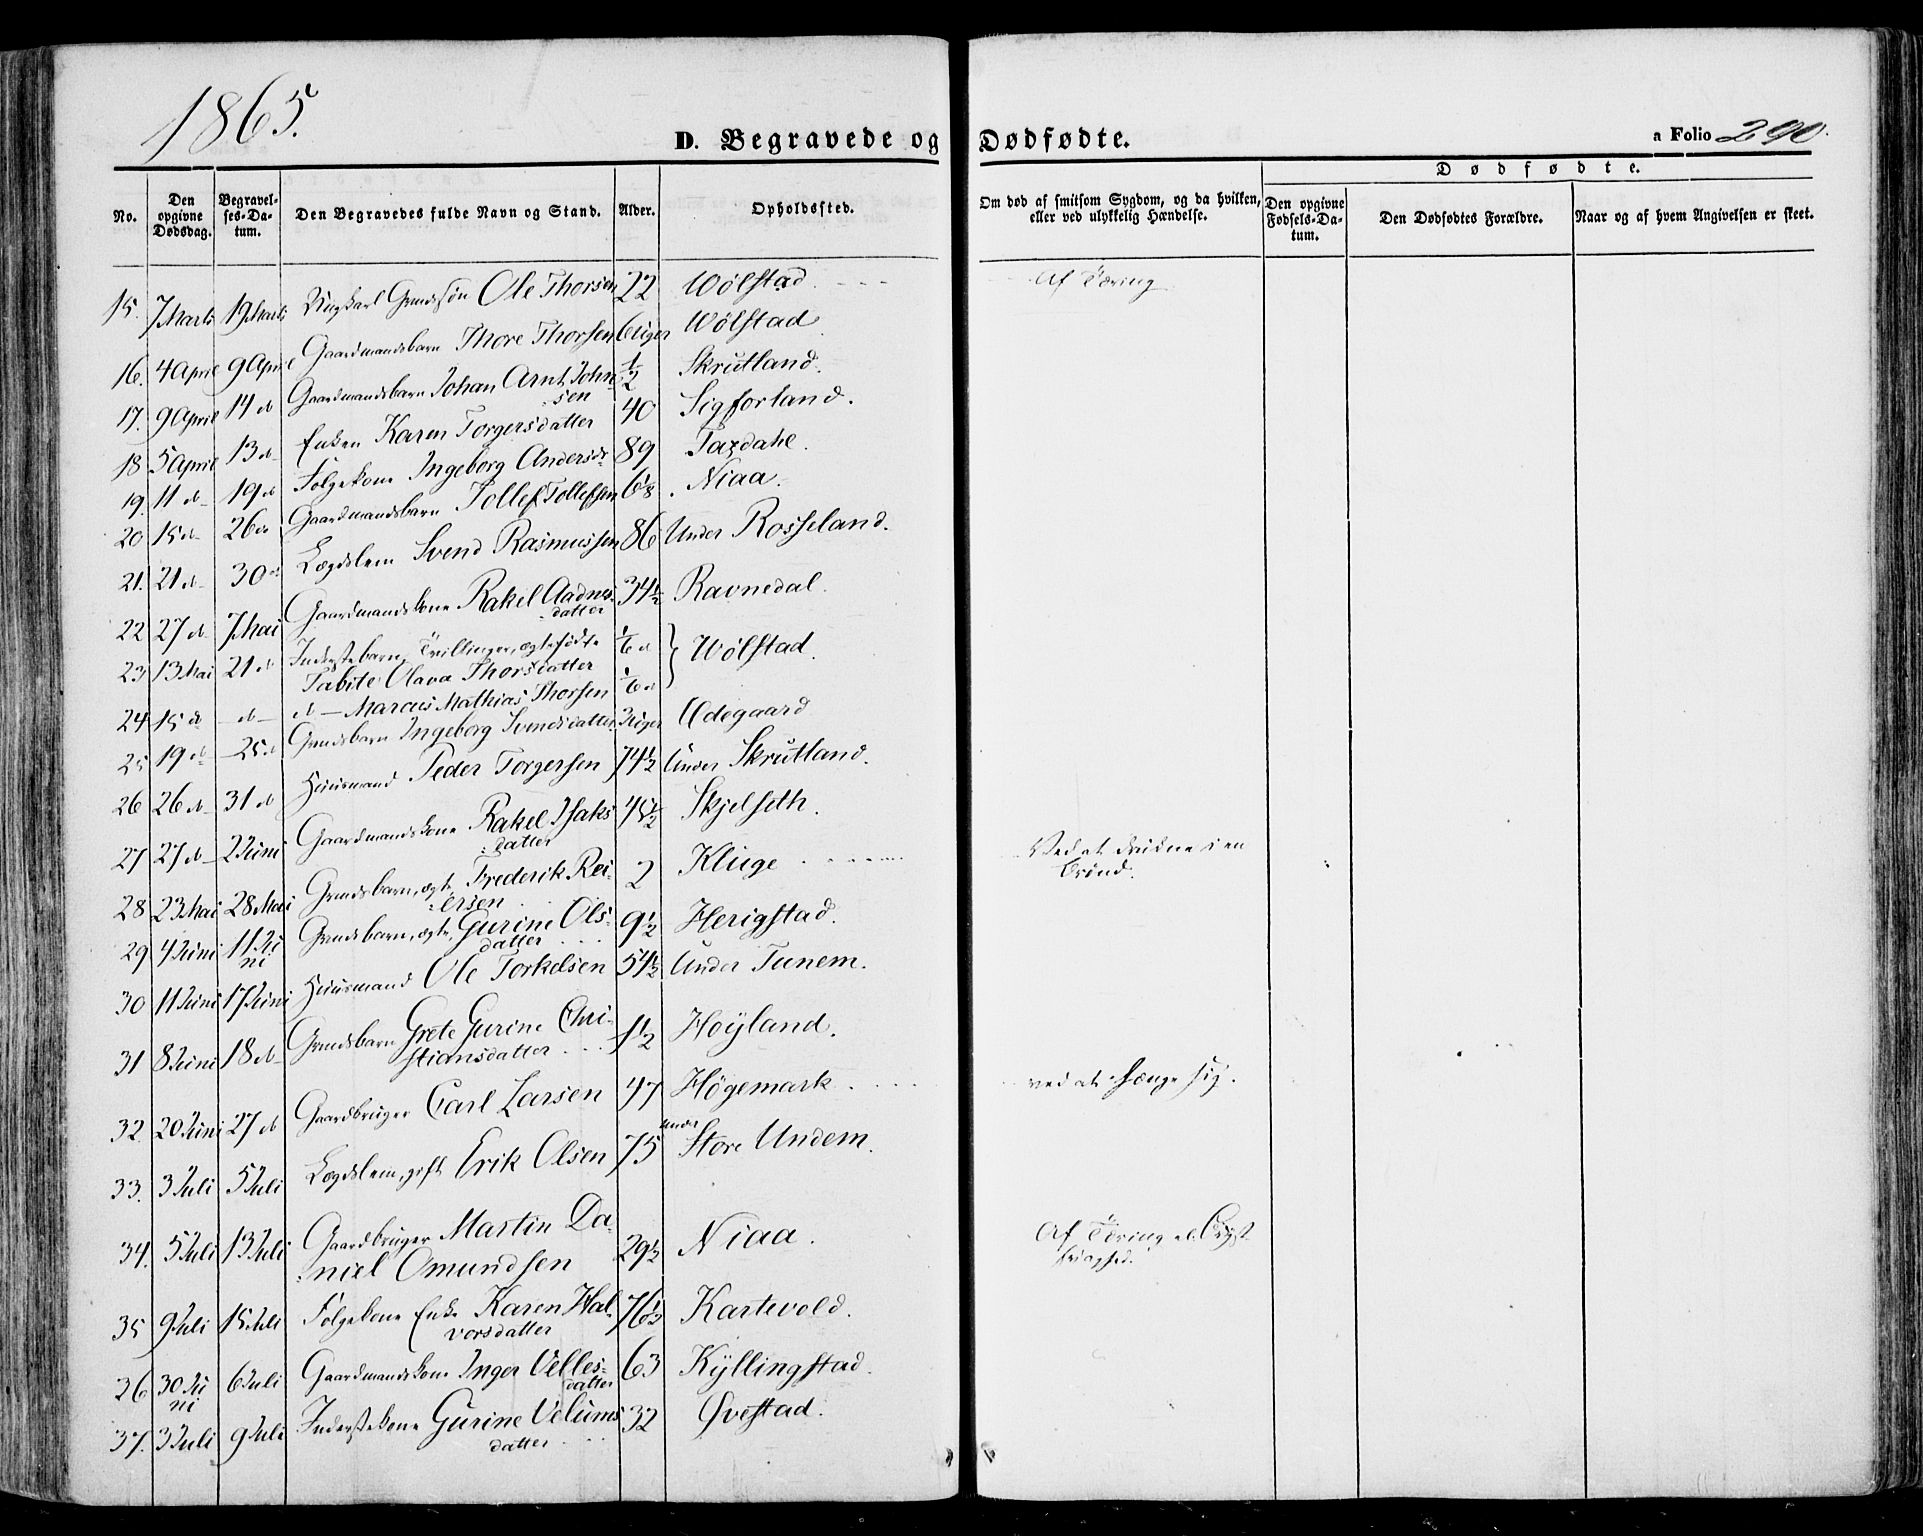 1865.
D. Begravede og Dødfødte.
a Folio 290.
No.
Den opgivne Dødsdag.
Begravelses-Datum.
Den Begravedes fulde Navn og Stand.
Alder.
Opholdssted.
Om død af smitsom Sygdom, og da hvilken, eller ved ulykkelig Hændelse.
Dødfødte.
Den opgivne Fødsels-Datum.
Den Dødfødtes Forældre.
Naar og af hvem Angivelsen er skeet.
15. 7 Marts 19 Marts Ungkarl Grmdssøn Ole Thorsen 22 Wølstad. Af Tæring
16. 4 April 9 April Gaardmandsbarn Thore Thorsen 6 Uger Wølstad
17. 9 April 14 do Gaardmandsbarn Johan Arnt Johnsen 1/2 Skrutland.
18 5 April 13 do Enken Karen Torgersdatter 40 Sigforland.
19. 11 do 19 do Følgekone Ingeborg Andersdr 89 Taxdahl.
20 15 do 26 do Gaardmandsbarn Tollef Tollefsen 6 1/8 Niaa.
21. 21 do 30 do Lægdslem Svend Rasmussen 86 Under Rosseland.
22 27 do 7 Mai Gaardmandskone Rakel Aadnesdatter 34 1/2 Ravnedal.
23 13 Mai 21 do Inderstebarn, Tvillinger, ægtefødte Tabite Olava Thorsdatter Wølstad.
24 15 do do do Marcus Mathias Thorsen
25 19 do 25 do Grmdsbarn Ingeborg Svendsdatter 3 Uger Ødegaard
26 26 do 31 do Huusmand Peder Torgersen 74 1/2 Under Skrutland.
27 27 do 2 Juni Gaardmandskone Rakel Isaksdatter 45 1/2 Skjelseth.
28 23 Mai 28 Mai Grmdsbarn, ægte, Frederik Reiersen 2 Kluge Ved at drukne i en Brønd.
29 4 Juni 11 Juni Grmdsbarn, ægte, Gurine Olsdatter 9 1/2 Herigstad.
30 11 Juni 17 Juni Huusmand Ole Torkelsen 54 1/2 Under Tunem.
31 8 Juni 18 do Grmdsbarn Grete Gurine Christiansdatter 1 1/2 Høyland.
32. 20 Juni 27 do Gaardbruger Carl Larsen 47 Høgemark. ved at hænge sig.
33. 3 Juli 5 Juli Lægdslem, gift Erik Olsen 75 under Store Undem.
34. 5 Juli 13 Juli Gaardbruger Martin Daniel Omundsen 29 1/2 Niaa. Af Tæring el. Brystsvaghed.
35 9 Juli 15 Juli Følgekone Enke Karen Halvorsdatter 76 1/2 Kartevold.
36 30 Juni 6 Juli Gaardmandskone Inger Vellesdatter 63 Kyllingstad.
37. 3 Juli 9 Juli Inderstekone Gurine Velumsdatter 32 Øvestad.